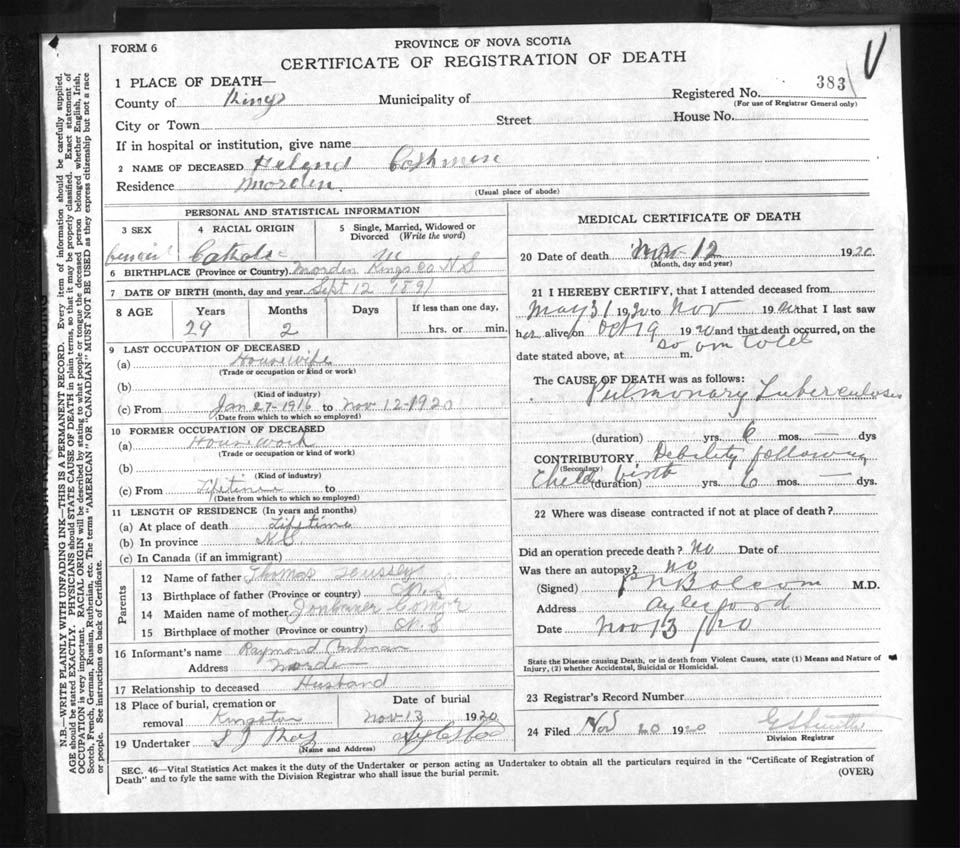 FORM 6
PROVINCE OF NOVA SCOTIA
CERTIFICATE OF REGISTRATION OF DEATH
1 PLACE OF DEATH—
County of Kings Municipality of Registered No. 383
(For use of Registrar General only)
City or Town Street House No.
If in hospital or institution, give name
2 NAME OF DECEASED
Residence Morden. (Usual place of abode)
PERSONAL AND STATISTICAL INFORMATION
3 SEX 4 RACIAL ORIGIN 5 Single, Married, Widowed or Divorced (Write the word)
M
6 BIRTHPLACE (Province or Country) Morden Kings Co N S
7 DATE OF BIRTH (month, day and year) Sept 12 1891
8 AGE Years Months Days If less than one day,
29 2 hrs. or min.
9 LAST OCCUPATION OF DECEASED
(a) Housewife
(Trade or occupation or kind or work)
(b)
(Kind of industry)
(c) From Jan 27-1916 to Nov 12-1920
(Date from which to which so employed)
10 FORMER OCCUPATION OF DECEASED
(a) Housework
(Trade or occupation or kind of work)
(b)
(Kind of industry)
(c) From Lifetime to
(Date from which to which so employed)
11 LENGTH OF RESIDENCE (In years and months)
(a) At place of death Lifetime
(b) In province N S
(c) In Canada (if an immigrant)
Parents
12 Name of father Thomas
13 Birthplace of father (Province or country) N S
14 Maiden name of mother
15 Birthplace of mother (Province or country) N. S
16 Informant's name Raymond
Address Morden
17 Relationship to deceased Husband
18 Place of burial, cremation or removal Kingston Date of burial Nov 13 1920
19 Undertaker (Name and Address)
MEDICAL CERTIFICATE OF DEATH
20 Date of death Nov 12 1920
(Month, day and year)
21 I HEREBY CERTIFY, that I attended deceased from
May 31 1920 to Nov 1920 that I last saw
her alive on Oct 19 1920 and that death occurred, on the
so am told
date stated above, at m.
The CAUSE OF DEATH was as follows:
Pulmonary Tuberculosis
(duration) yrs. 6 mos. — dys
CONTRIBUTORY Debility following
(Secondary)
Child birth (duration) yrs. 6 mos. — dys.
22 Where was disease contracted if not at place of death?
Did an operation precede death? No Date of
Was there an autopsy? No
(Signed) M.D.
Address Aylesford
Date Nov 13 /20
State the Disease causing Death, or in death from Violent Causes, state (1) Means and Nature of Injury, (2) whether Accidental, Suicidal or Homicidal.
23 Registrar's Record Number
24 Filed Nov 20 1920
Division Registrar
SEC. 46—Vital Statistics Act makes it the duty of the Undertaker or person acting as Undertaker to obtain all the particulars required in the "Certificate of Registration of
Death" and to fyle the same with the Division Registrar who shall issue the burial permit. (OVER)
N.B.—WRITE PLAINLY WITH UNFADING INK—THIS IS A PERMANENT RECORD. Every item of information should be carefully supplied.
AGE should be stated EXACTLY. PHYSICIANS should STATE CAUSE OF DEATH in plain terms, so that it may be properly classified. Exact statement of
OCCUPATION is very important. RACIAL ORIGIN will be described by stating to what people or tongue the deceased person belonged whether English, Irish,
Scotch, French, German, Russian, Ruthenian, etc. The terms "AMERICAN" OR "CANADIAN" MUST NOT BE USED as they express citizenship but not a race
or people. See instructions on back of Certificate.